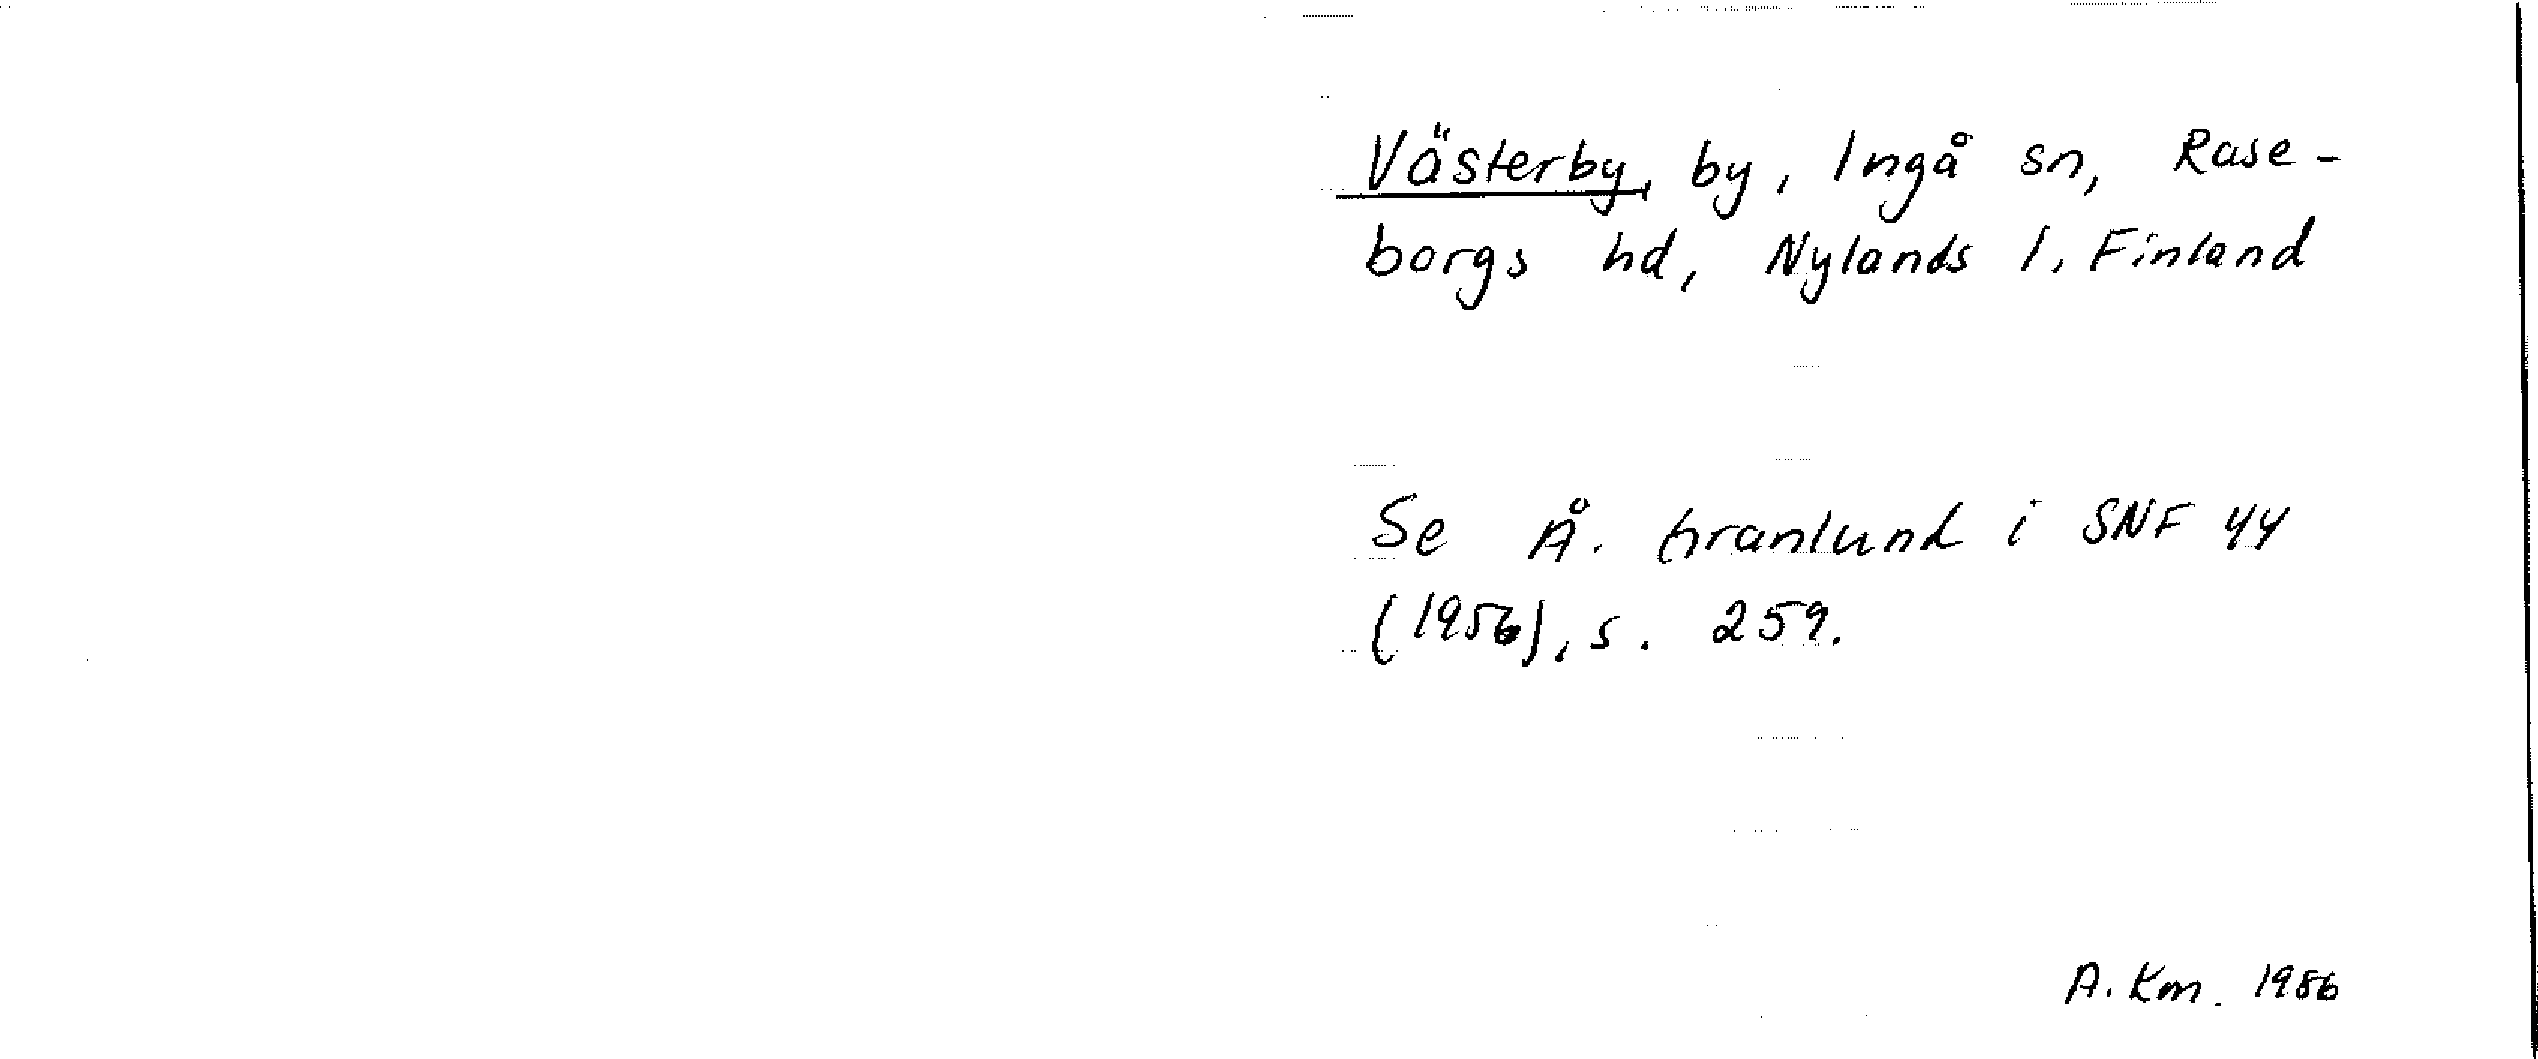 Västerby, by, Ingå sn, Rase-
borgs hd, Nylands l, Finland
Se Å. Granlund i SNF 44
(1956), s. 259.
A. Km. 1986